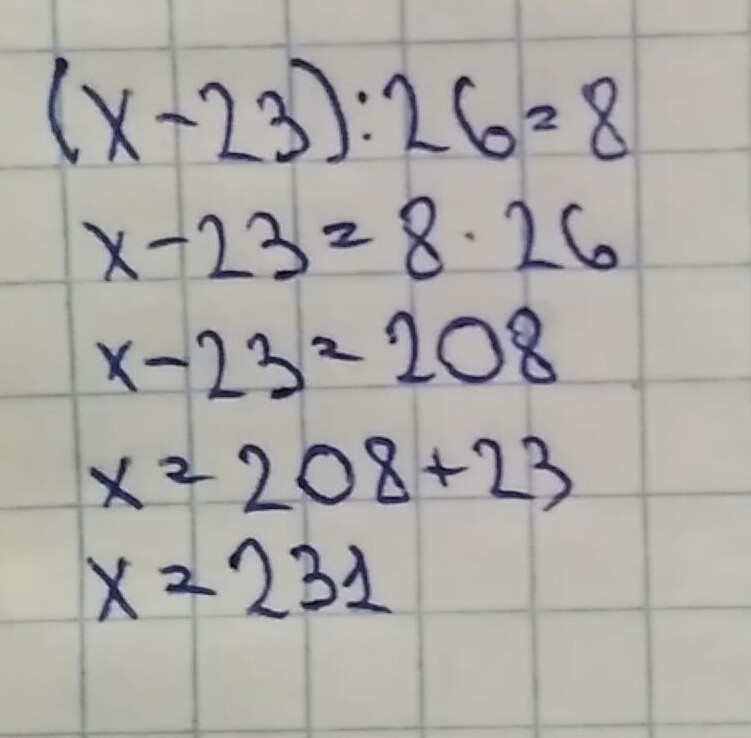 (x-23):26=8
x-23=8·26
x-23=208
x=208+23
x=231